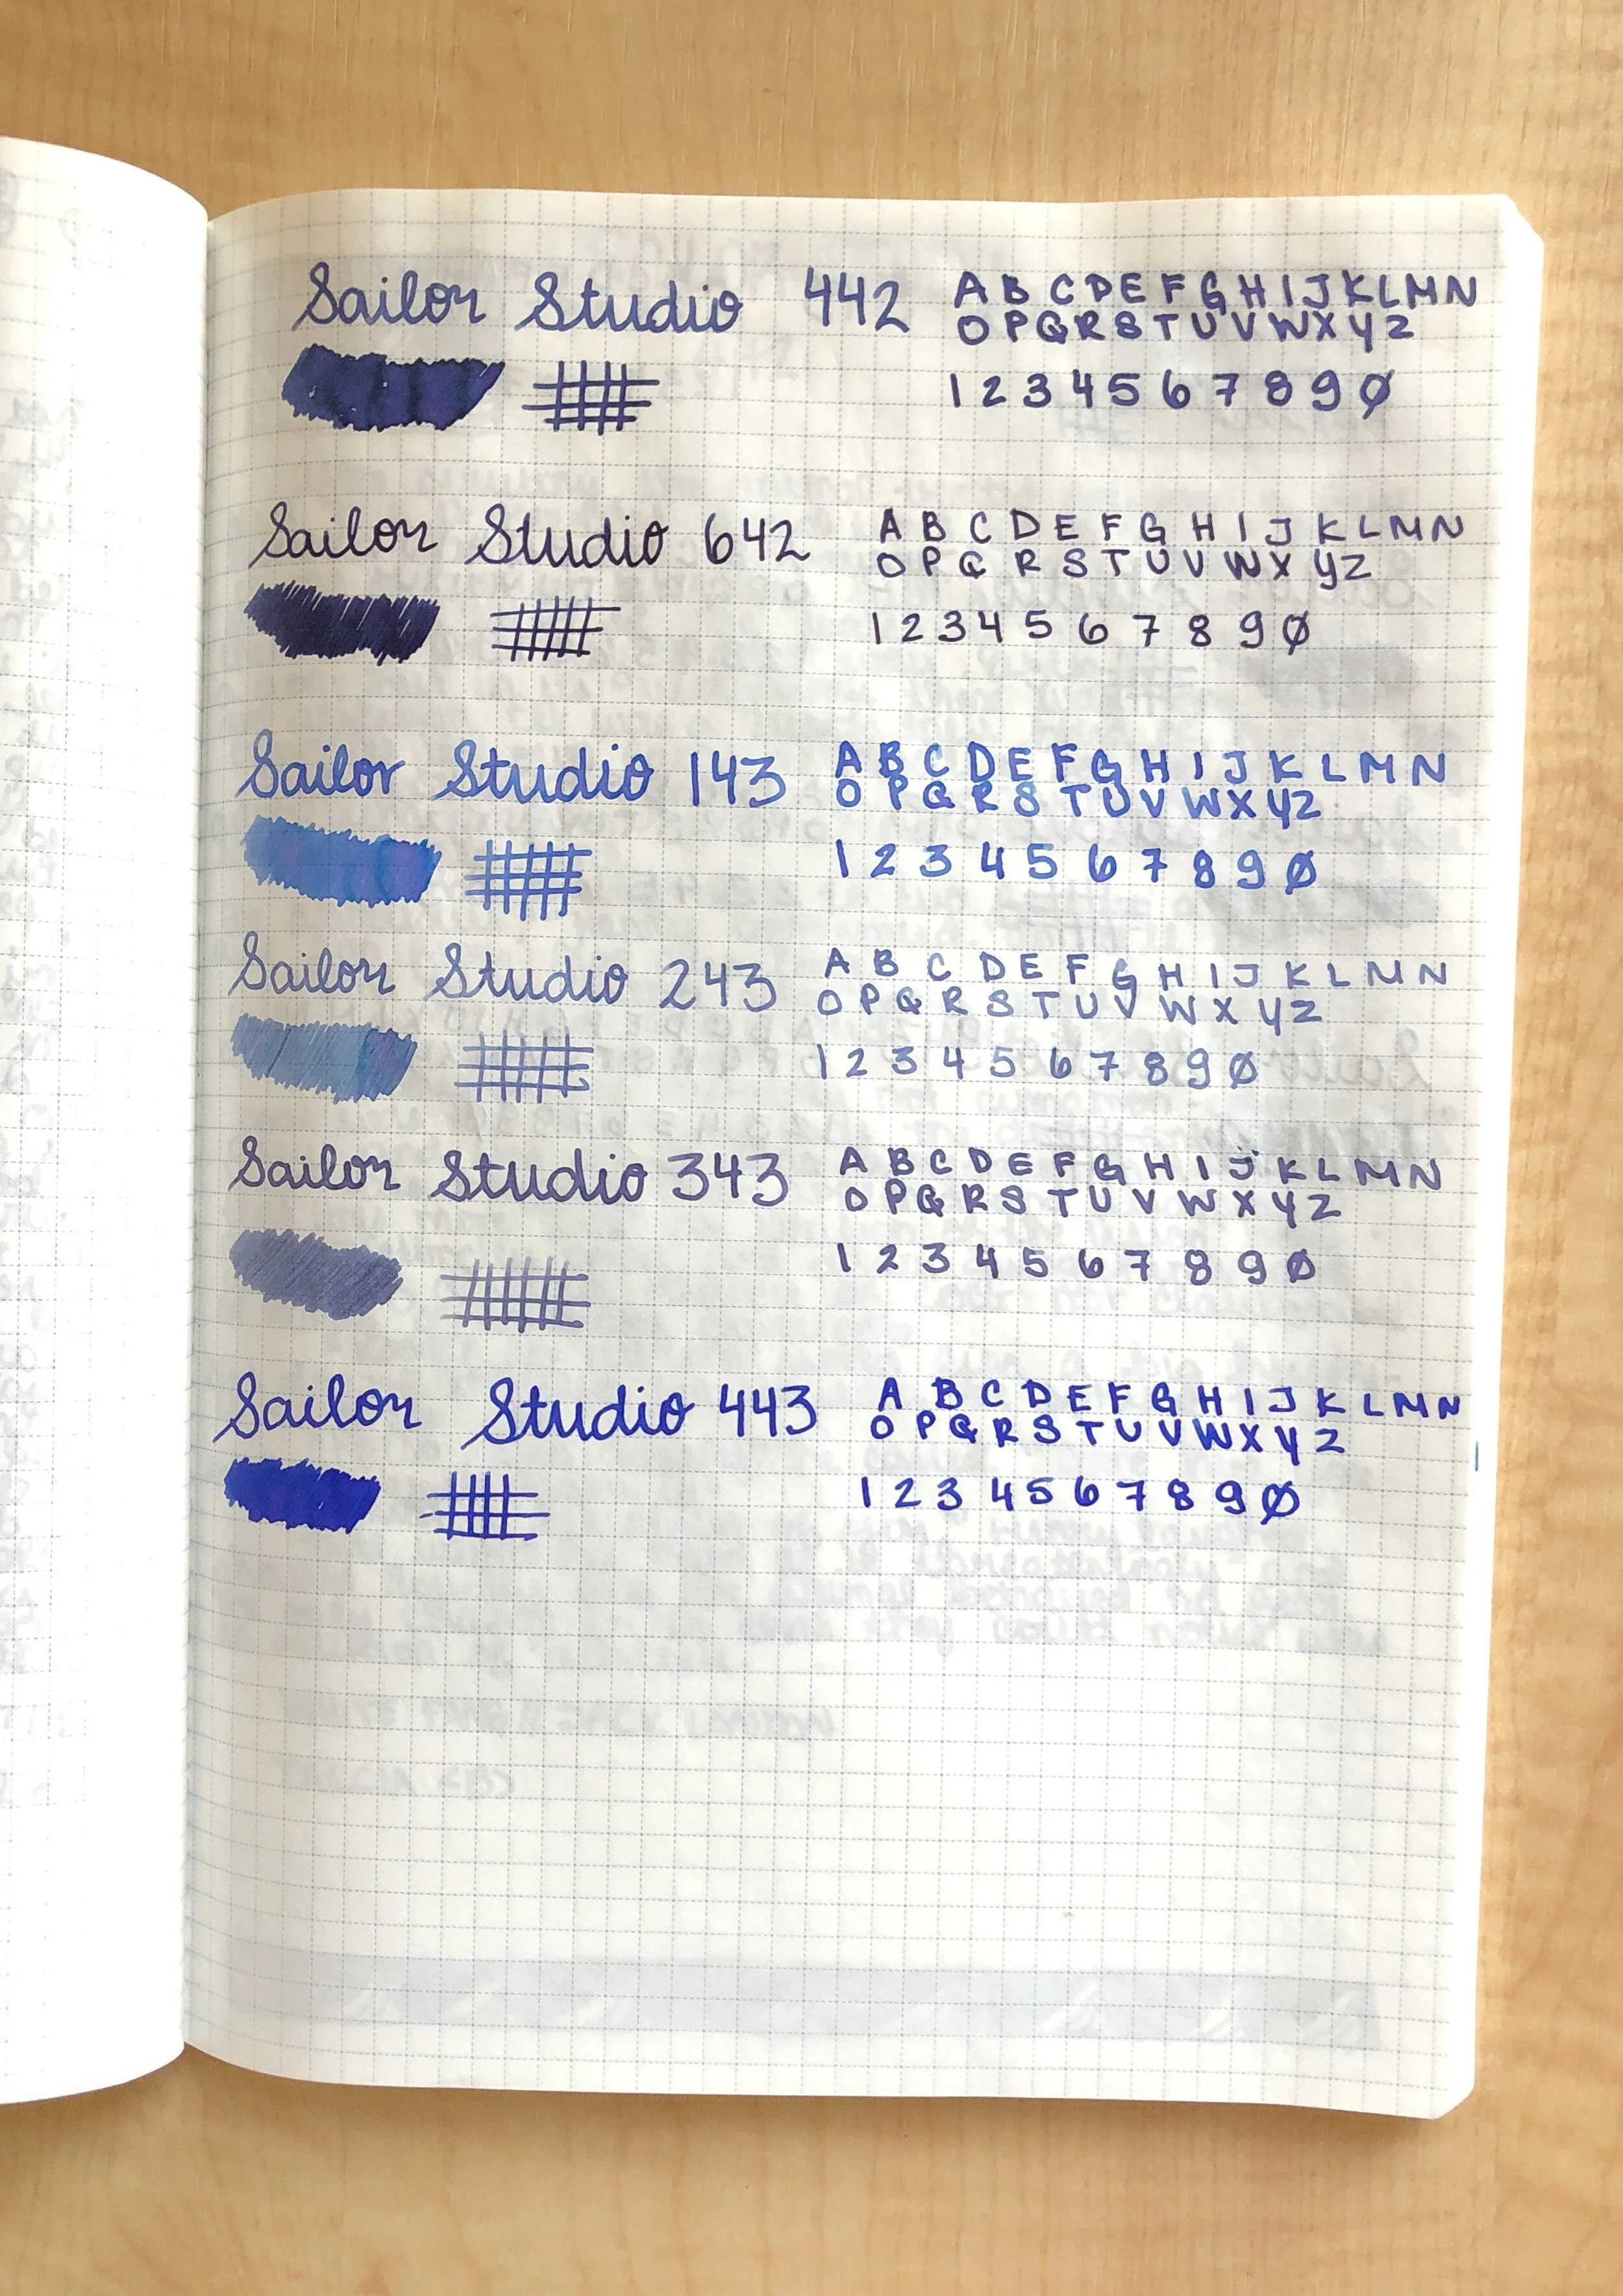 Sailor Studio 442
A B C D E F G H I J K L M N
O P Q R S T U V W X Y Z
1 2 3 4 5 6 7 8 9 0
Sailor Studio 642
A B C D E F G H I J K L M N
O P Q R S T U V W X Y Z
1 2 3 4 5 6 7 8 9 0
Sailor Studio 143
A B C D E F G H I J K L M N
O P Q R S T U V W X Y Z
1 2 3 4 5 6 7 8 9 0
Sailor Studio 243
A B C D E F G H I J K L M N
O P Q R S T U V W X Y Z
1 2 3 4 5 6 7 8 9 0
Sailor Studio 343
A B C D E F G H I J K L M N
O P Q R S T U V W X Y Z
1 2 3 4 5 6 7 8 9 0
Sailor Studio 443
A B C D E F G H I J K L M N
O P Q R S T U V W X Y Z
1 2 3 4 5 6 7 8 9 0